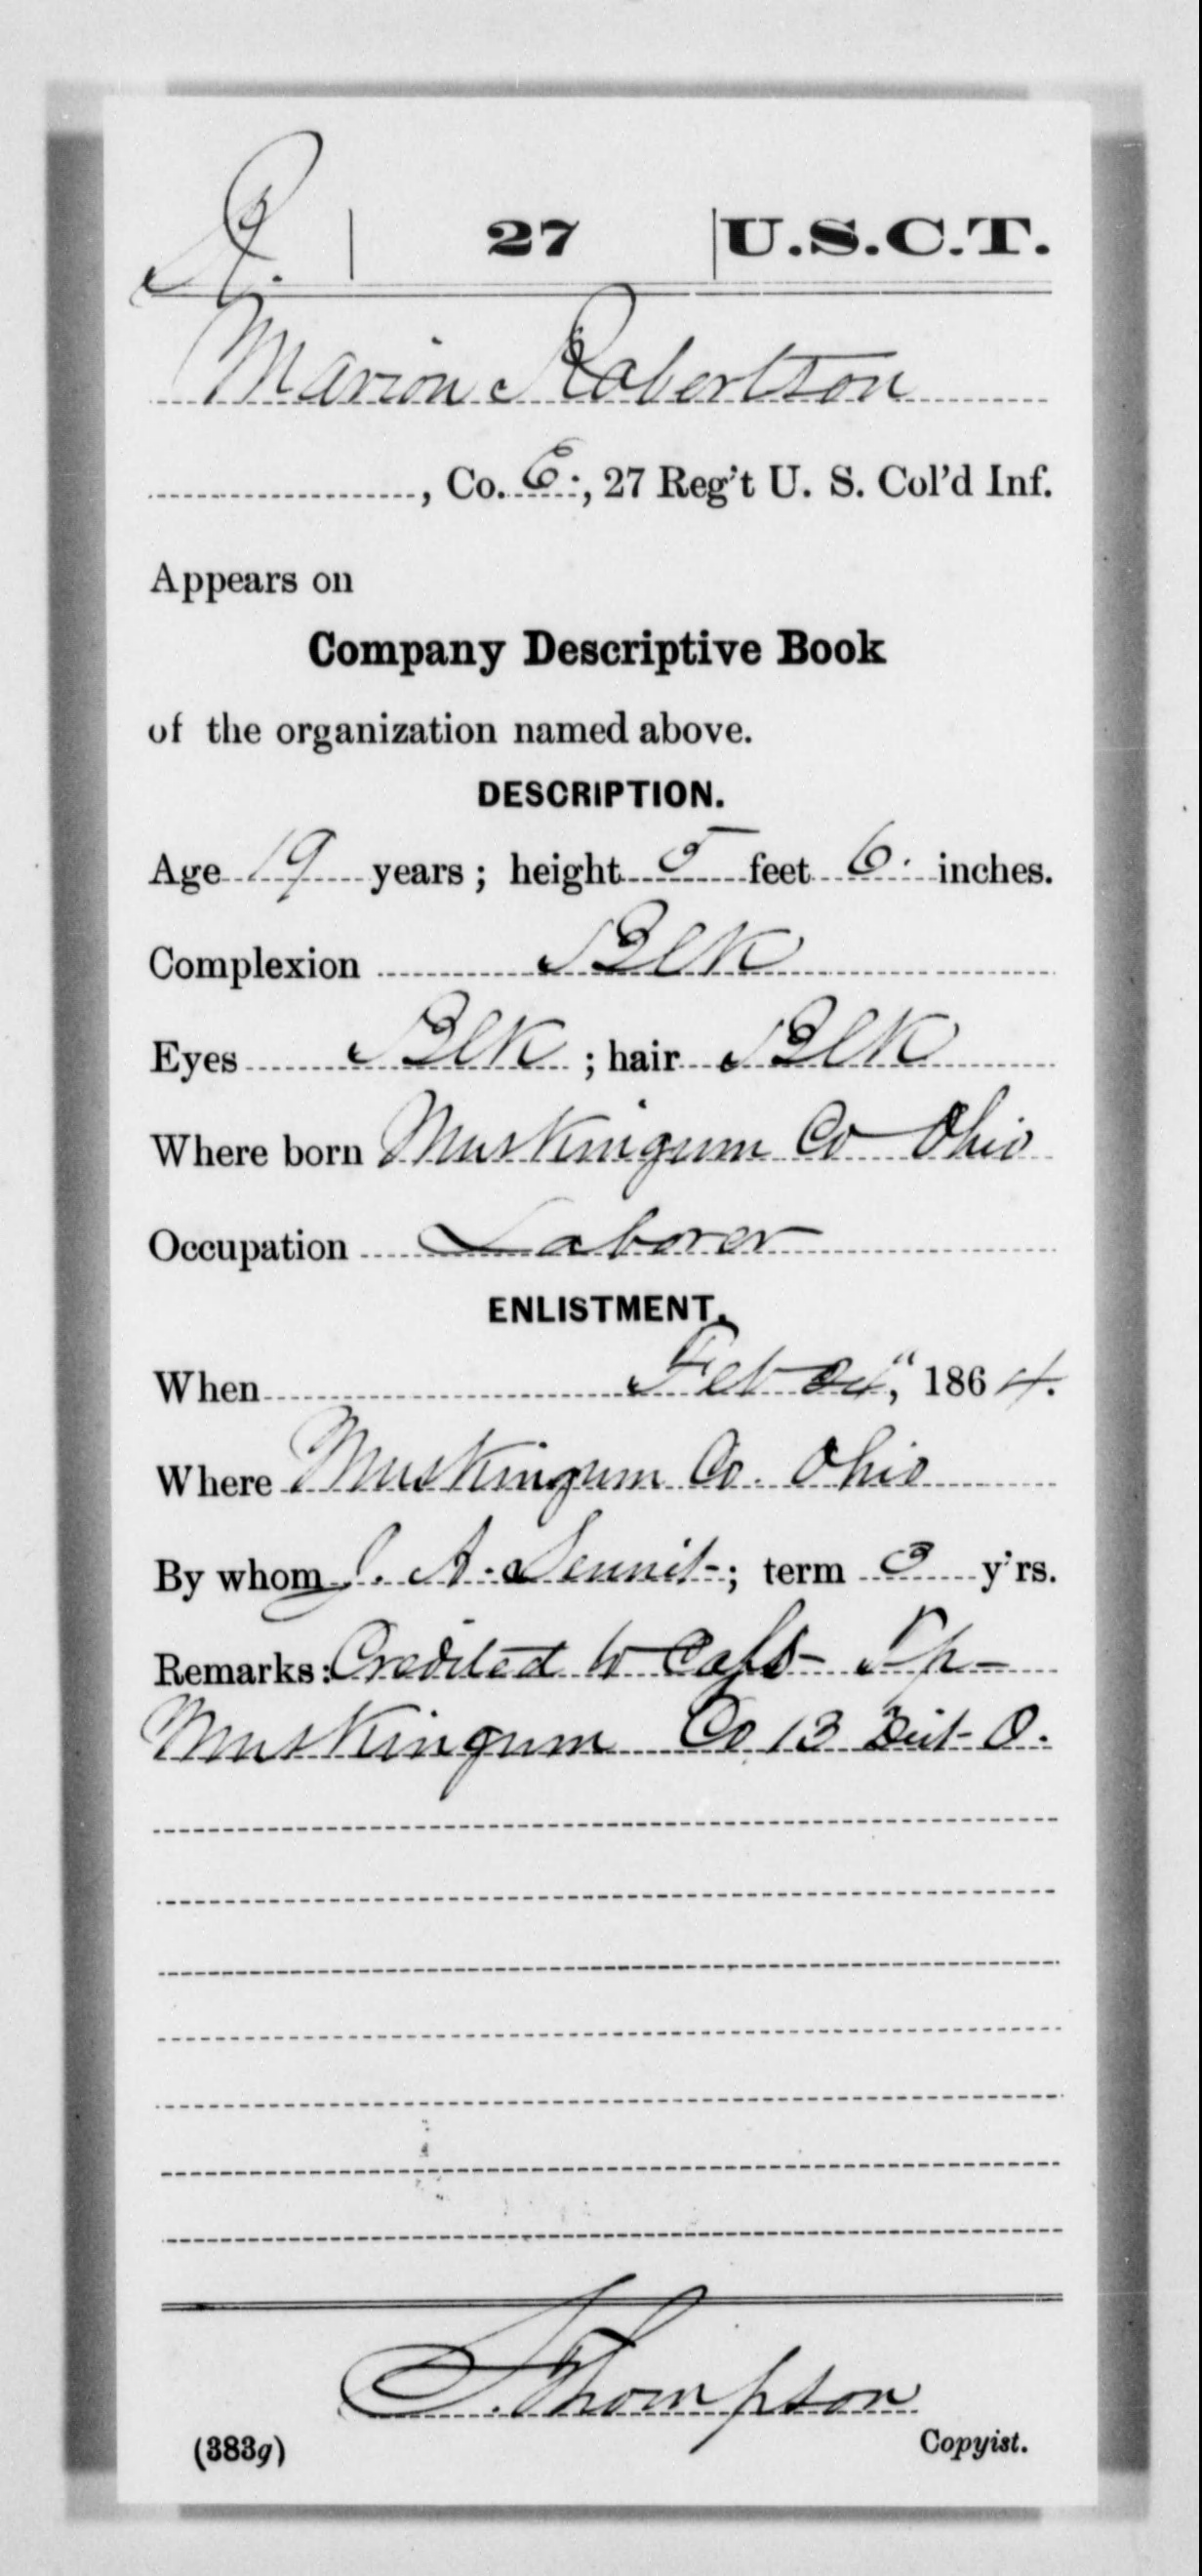 R. | 27 | U.S.C.T.
Marion Robertson
, Co. E., 27 Reg't U. S. Col'd Inf.
Appears on
Company Descriptive Book
of the organization named above.
DESCRIPTION.
Age 19 years; height 5 feet 6. inches.
Complexion Blk
Eyes Blk; hair Blk
Where born Muskingum Co Ohio
Occupation Laborer
ENLISTMENT.
When Feb , 1864.
Where Muskingum Co. Ohio
By whom J. A. ; term 3 y'rs.
Remarks: Credited to Tp-
Muskingum Co 13 Dist- O.
S. Thompson
Copyist.
(383g)